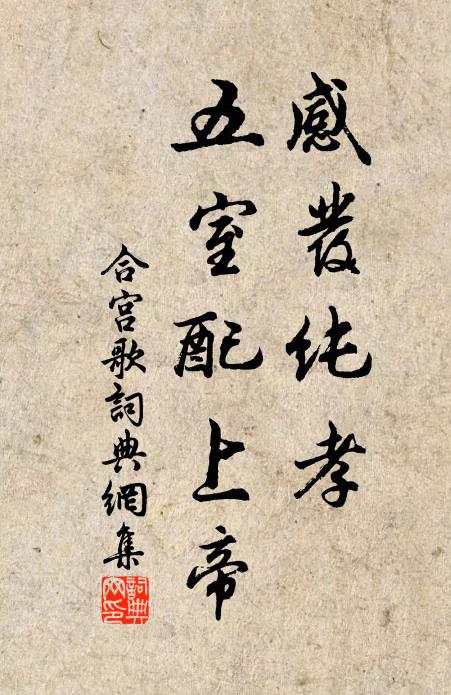 感發純孝
五室配上帝
合宮歌詞典網集
詞典網印